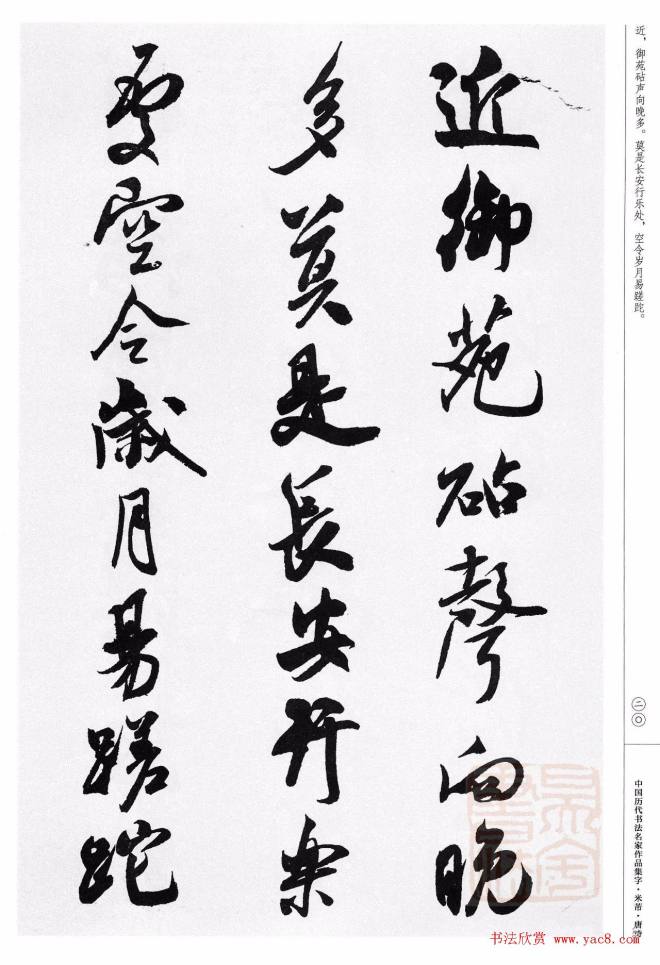 近御苑砧聲向晚
多莫是長安行樂
處空令歲月易蹉跎
近，御苑砧声向晚多。莫是长安行乐处，空令岁月易蹉跎。
二〇
中国历代书法名家作品集字·米芾·唐诗
书法欣赏 www.yac8.com